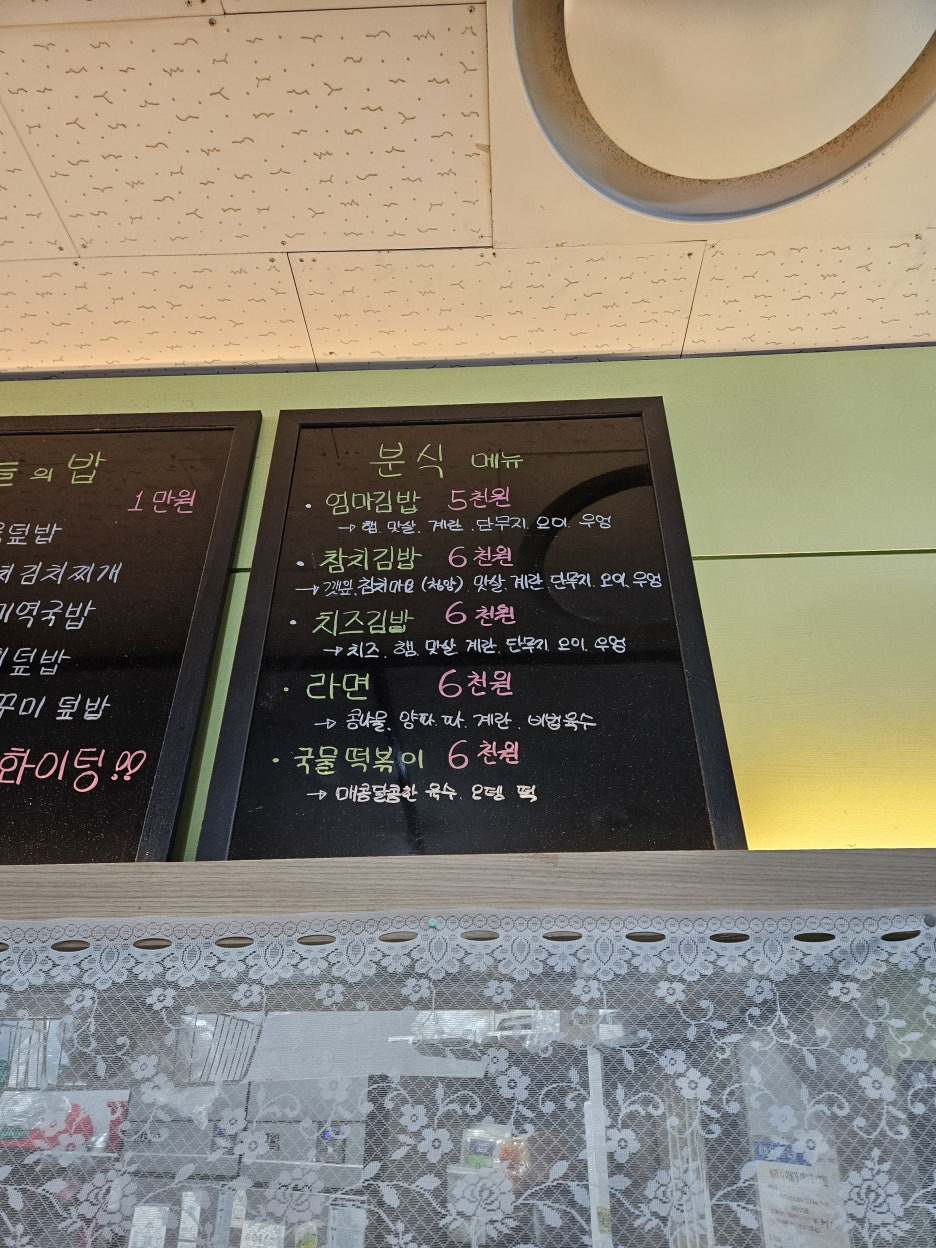 의 밥
1만원
덮밥
김치찌개
미역국밥
덮밥
꾸미 덮밥
화이팅!!
분식 메뉴
· 엄마김밥 5천원
→ 햄. 맛살. 계란. 단무지. 오이. 우엉
· 참치김밥 6천원
→ 깻잎. 참치마요 (청양) 맛살. 계란. 단무지. 오이. 우엉
· 치즈김밥 6천원
→ 치즈. 햄. 맛살. 계란. 단무지. 오이. 우엉
· 라면 6천원
→ 콩나물. 양파. 파. 계란. 비법육수
· 국물떡볶이 6천원
→ 매콤달콤한 육수. 오뎅. 떡